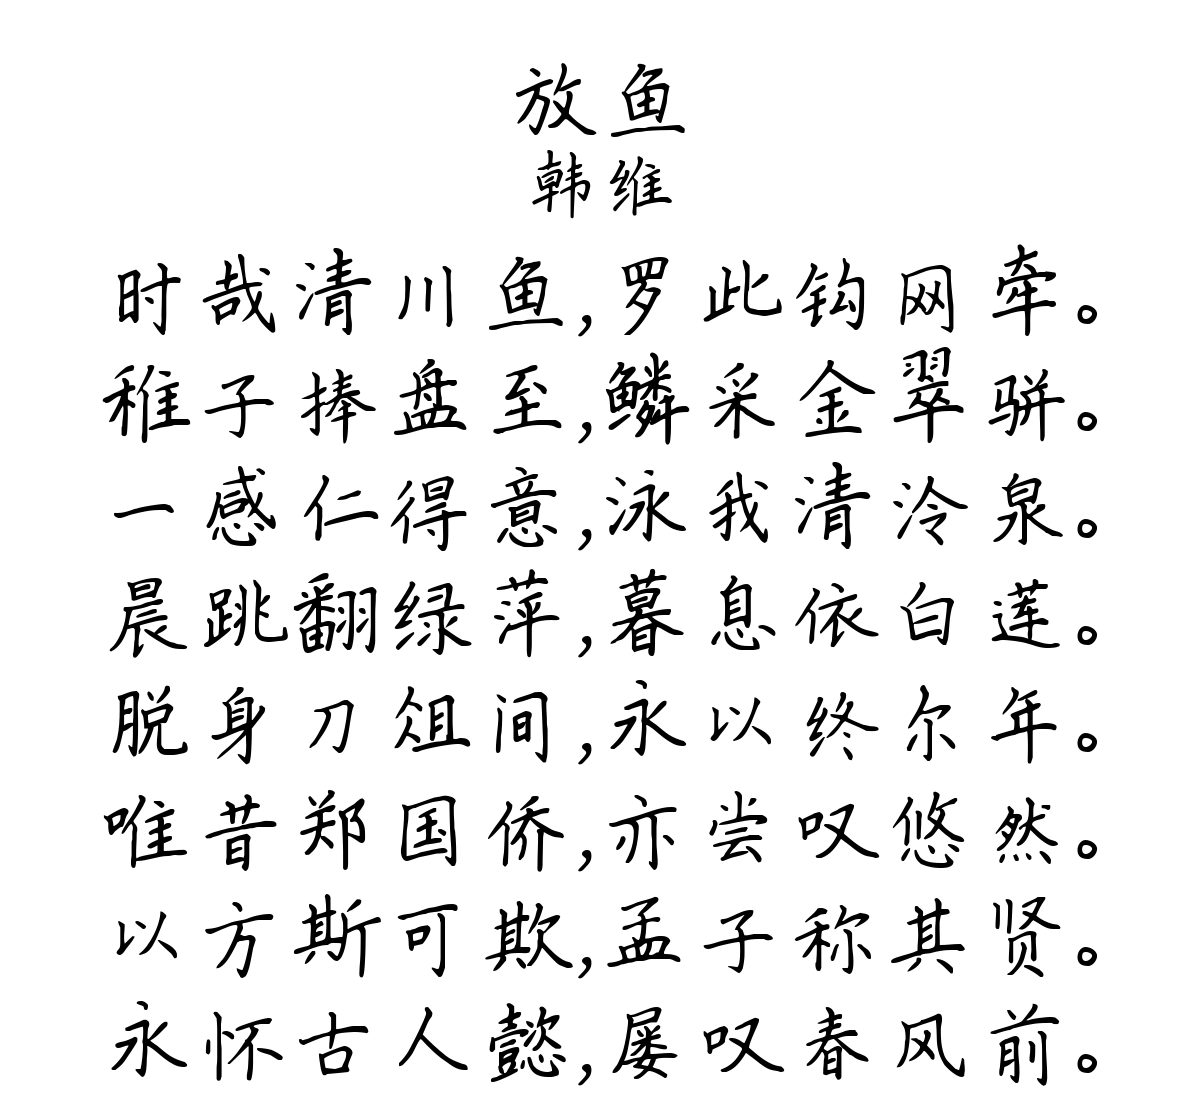 放鱼
韩维
时哉清川鱼,罗此钩网牵。
稚子捧盘至,鳞采金翠骈。
一感仁得意,泳我清泠泉。
晨跳翻绿萍,暮息依白莲。
脱身刀俎间,永以终尔年。
唯昔郑国侨,亦尝叹悠然。
以方斯可欺,孟子称其贤。
永怀古人懿,屡叹春风前。